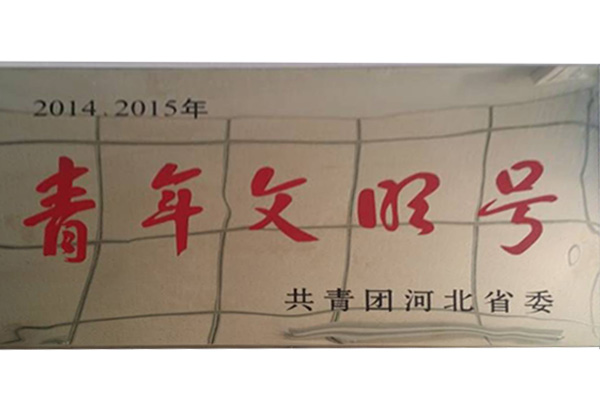 2014.2015年
青年文明号
共青团河北省委